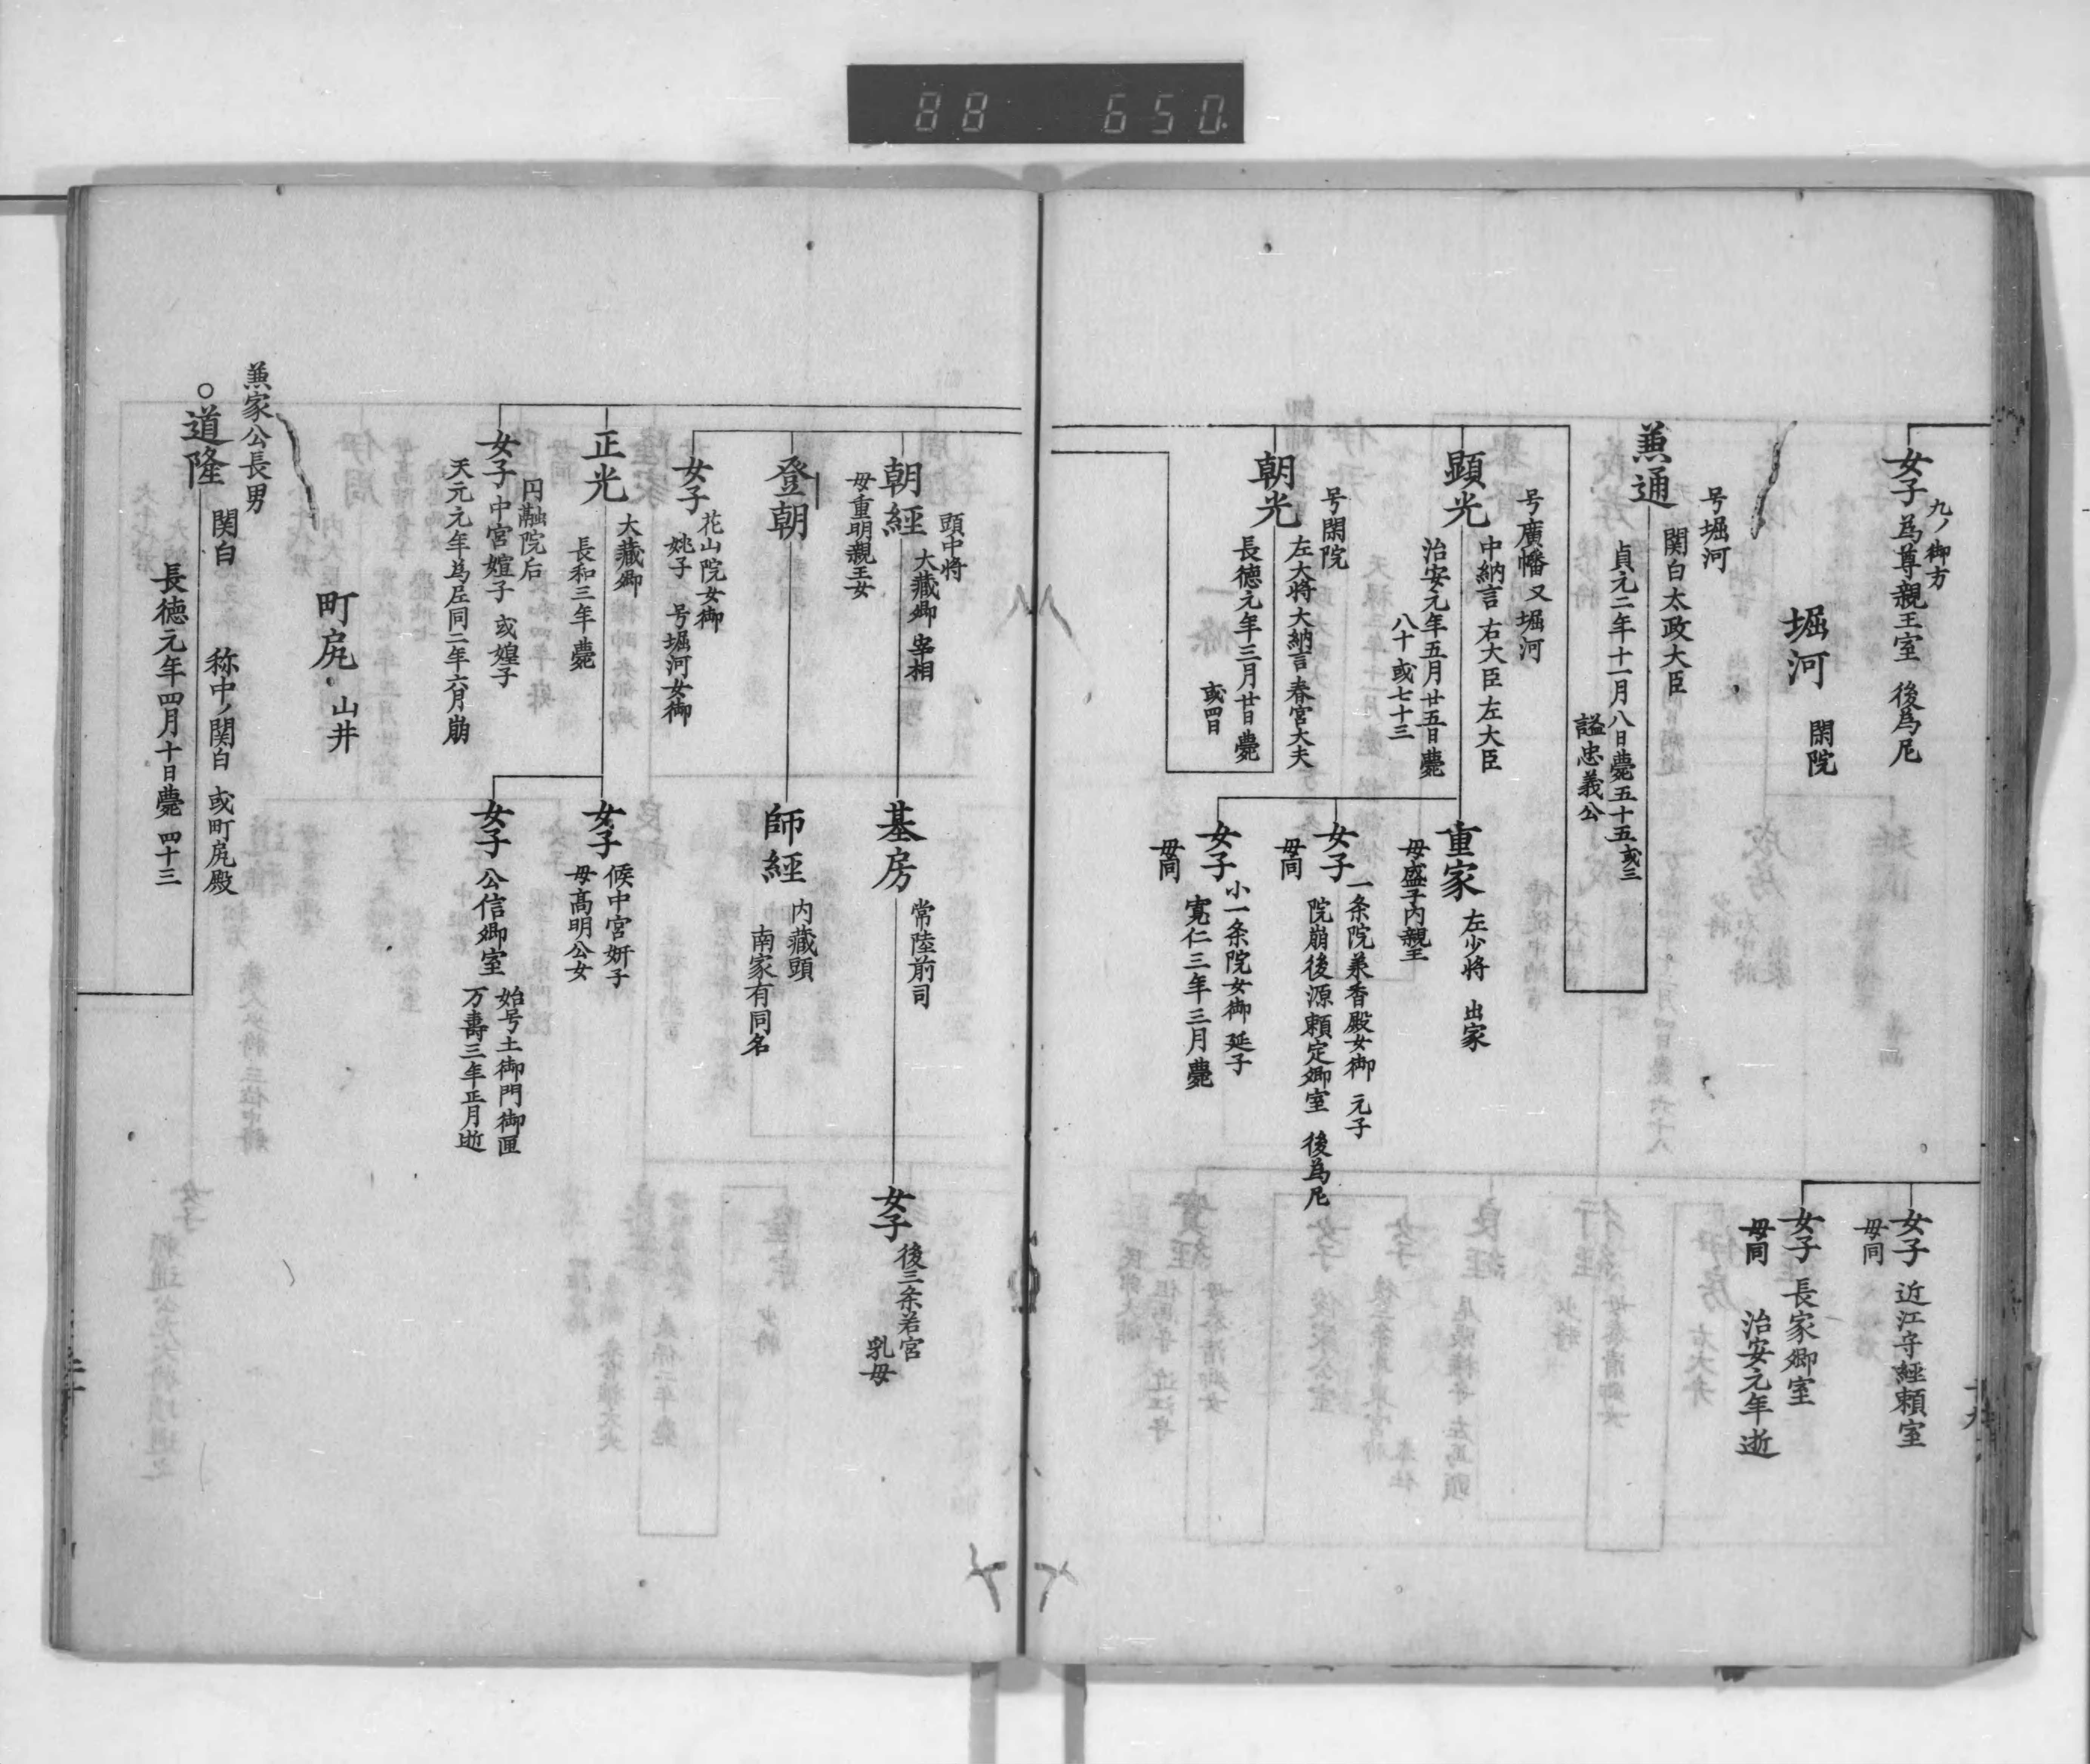 88 650
女子
九ノ御方
為尊親王室 後為尼
女子 近江守経頼室
母同
女子 長家卿室
母同
治安元年逝
堀河 閑院
兼通
号堀河
関白太政大臣
貞元二年十一月八日薨五十五或三
諡忠義公
顕光
号廣幡又堀河
中納言 右大臣 左大臣
治安元年五月廿五日薨
八十或七十三
重家 左少将 出家
母盛子内親王
女子 一条院兼香殿女御 元子
母同
院崩後源頼定卿室 後為尼
女子 小一条院女御 延子
母同
寛仁三年三月薨
朝光
号閑院
左大将 大納言 春宮大夫
長徳元年三月廿日薨
或四日
朝經
頭中将
大蔵卿 宰相
母重明親王女
基房 常陸前司
女子 後三条若宮
乳母
登朝
師經 内蔵頭
南家有同名
女子 花山院女御
姚子 号堀河女御
正光 大蔵卿
長和三年薨
女子 候中宮妍子
母高明公女
女子 公信卿室
始号土御門御匣
万壽三年正月逝
女子 円融院后
中宮媓子 或媓子
天元元年為后同二年六月崩
町尻 山井
兼家公長男
○道隆
関白 称中ノ関白 或町尻殿
長徳元年四月十日薨 四十三